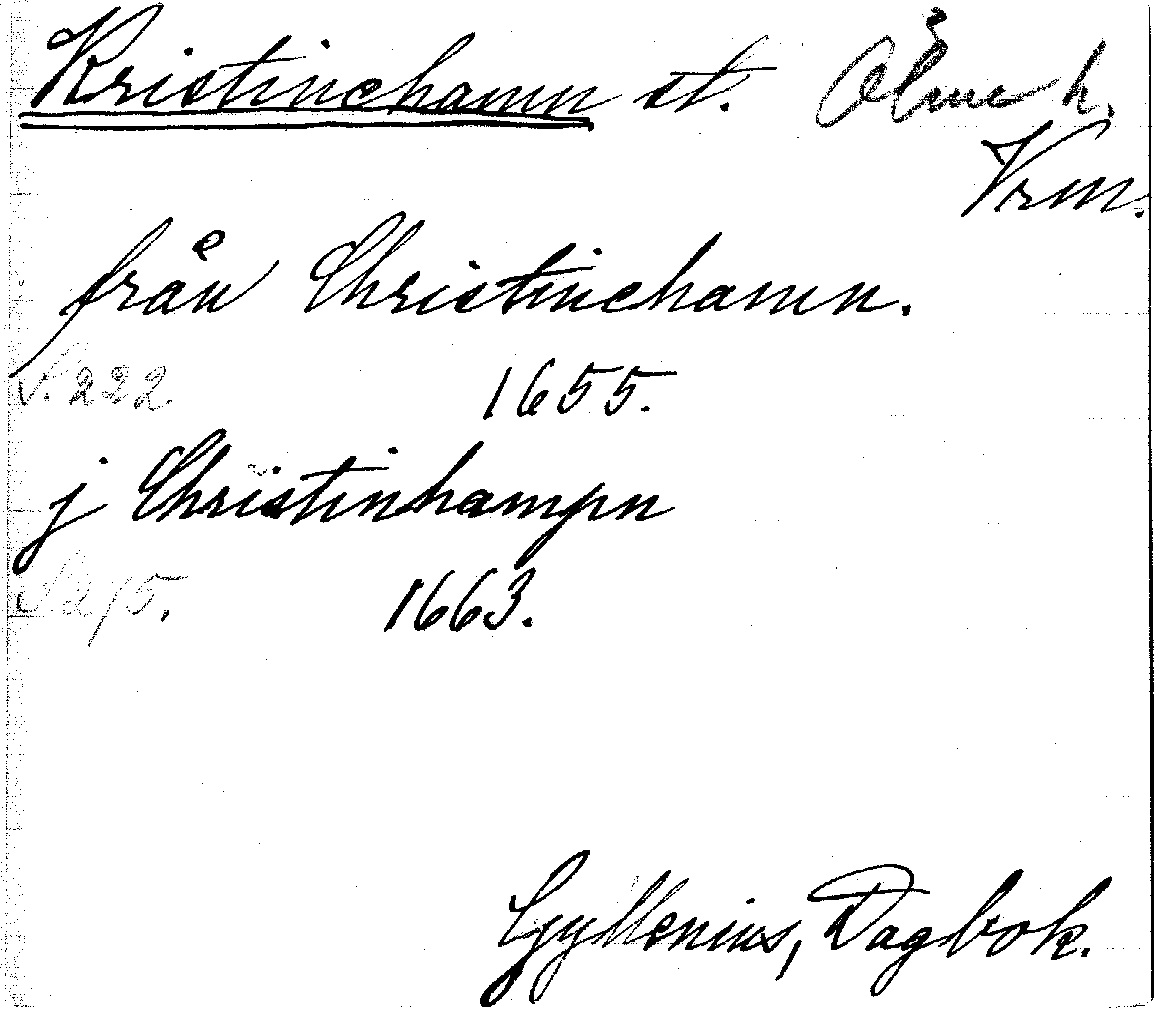 Kristinehamn st. Ölme h.
Vrm.
från Christinehamn.
S. 222 1655.
j Christinhampn
S. 275. 1663.
Gyllenius, Dagbok.